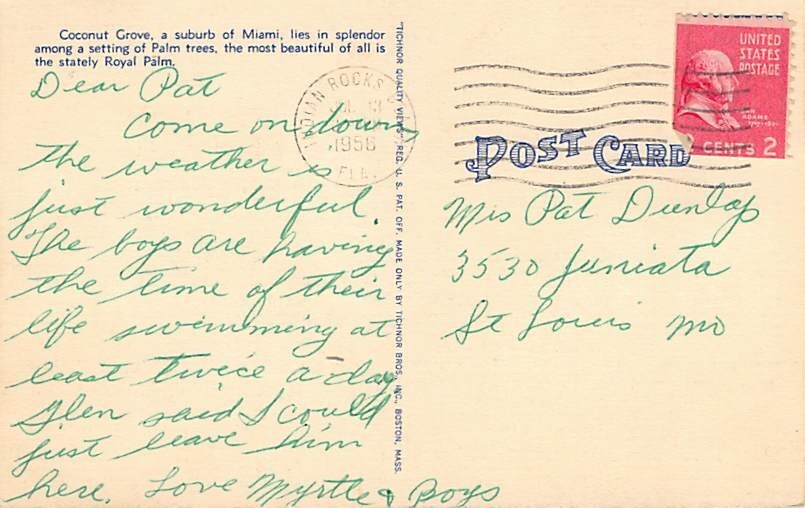 Coconut Grove, a suburb of Miami, lies in splendor
among a setting of Palm trees, the most beautiful of all is
the stately Royal Palm.
Dear Pat
Come on down
the weather is
just wonderful.
The boys are having
the time of their
life swimming at
least twice a day
Glen said I could
just leave him
here. Love Myrtle & Boys
"TICHNOR QUALITY VIEWS," REG. U. S. PAT. OFF. MADE ONLY BY TICHNOR BROS., INC., BOSTON, MASS.
INDIAN ROCKS
13
1956
FLA.
UNITED
STATES
POSTAGE
ADAMS
CENTS 2
POST CARD
Mis Pat Dunlap
3530 Juniata
St Louis Mo